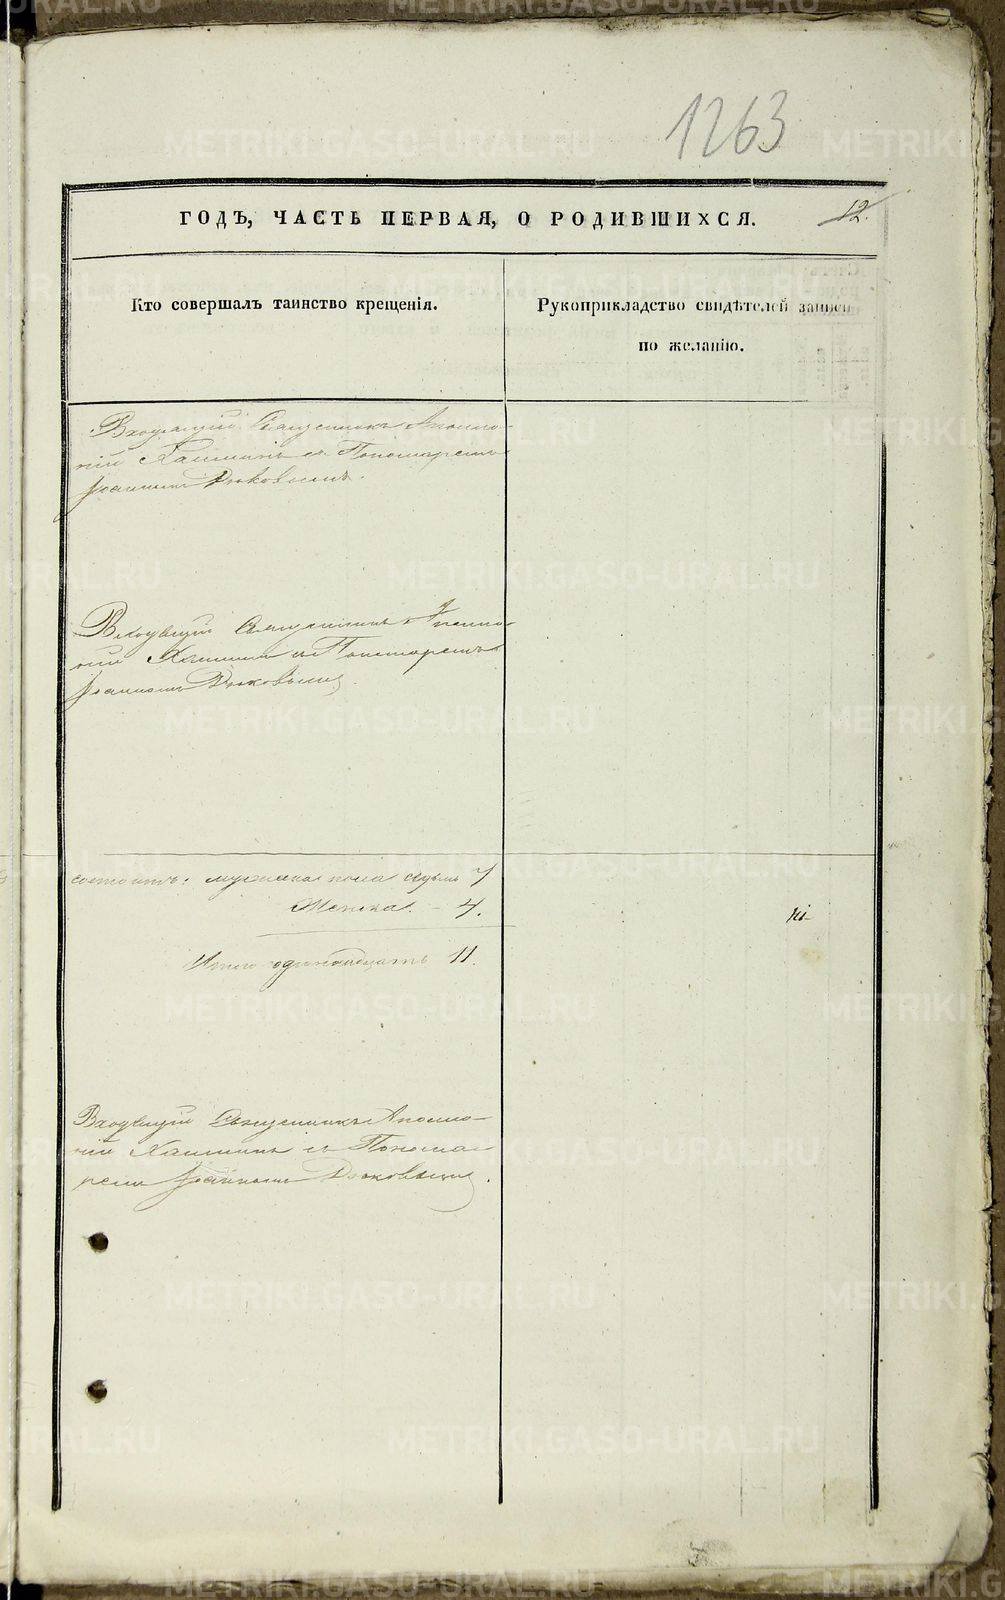 1263
ГОДЪ, ЧАСТЬ ПЕРВАЯ, О РОДИВШИХСЯ.
12.
Кто совершалъ таинство крещенія.
Рукоприкладство свидѣтелей записи
по желанію.
Священникъ Аполло-
ній Хлынинъ съ Пономаремъ
Іоанномъ Дюковымъ.
Священникъ Аполло-
ній съ Пономаремъ
Іоанномъ Дюковымъ
состоитъ: мужеска пола 7
Женска. - 4.
Итого одиннадцать 11.
Священникъ Аполло-
ній съ Понома-
ремъ Іоанномъ Дюковымъ.
METRIKI.GASO-URAL.RU